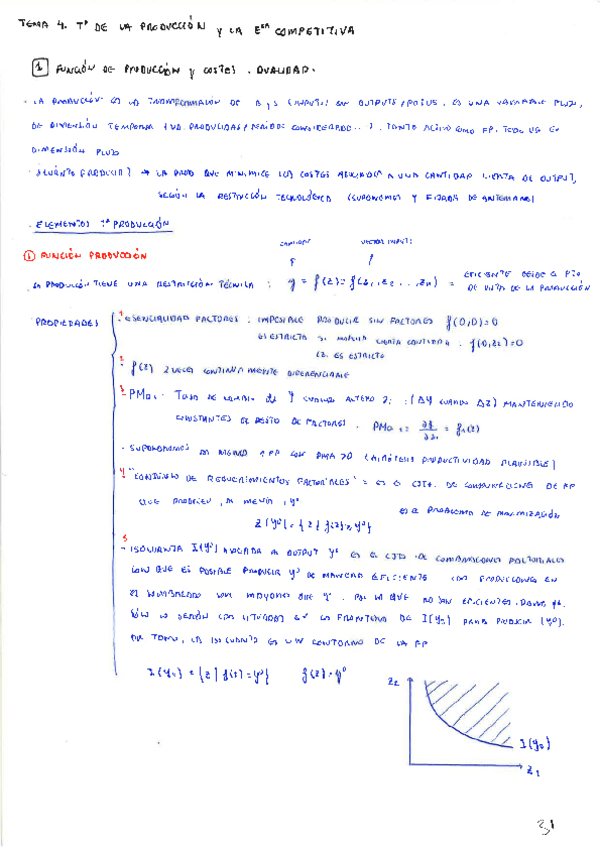 TEMA 4. Tª DE LA PRODUCCIÓN y LA Eᴿᴬ COMPETITIVA
1 FUNCIÓN DE PRODUCCIÓN y COSTES. DUALIDAD.
. LA PRODUCCIÓN ES LA TRANSFORMACIÓN DE B y S (INPUTS) EN OUTPUTS. ES UNA VARIABLE FLUJO,
DE DIMENSIÓN TEMPORAL (UD. PRODUCIDAS / PERIODO CONSIDERADO...). TANTO COMO FP. TODO VA EN
DIMENSIÓN FLUJO
. ¿CUÁNTO PRODUCIR? → LA PROD QUE MINIMICE LOS COSTES A UNA CANTIDAD CIERTA DE OUTPUT,
SEGÚN LA RESTRICCIÓN TECNOLÓGICA (SUPONEMOS Y FIJADA DE ANTEMANO)
. ELEMENTOS Tª PRODUCCIÓN
CANTIDAD VECTOR INPUTS
1 FUNCIÓN PRODUCCIÓN
LA PRODUCCIÓN TIENE UNA RESTRICCIÓN TÉCNICA : y = f(z) = f(z₁, z₂ ... zₙ) = EFICIENTE DESDE EL PTO
DE VISTA DE LA PRODUCCIÓN
PROPIEDADES
1 - ESENCIALIDAD FACTORES : IMPOSIBLE PRODUCIR SIN FACTORES f(0,0)=0
ES ESTRICTA SI CIERTA CANTIDAD. f(0,z₂)=0
ES ESTRICTO
2 - f(z) 2 VECES CONTINUAMENTE DIFERENCIABLE
3 - PMa : TASA DE CAMBIO DE Y CUANDO ALTERO Zᵢ : (ΔY CUANDO ΔZ) MANTENIENDO
CONSTANTES EL RESTO DE FACTORES. PMa = ∂f/∂zᵢ = fᵢ(z)
. SUPONDREMOS AL MENOS 1 FP CON PMa>0 (HIPÓTESIS PRODUCTIVIDAD PLAUSIBLE)
4 "CONJUNTO DE REQUERIMIENTOS FACTORIALES" = ES EL CJTO. DE COMBINACIONES DE FP
QUE PRODUCEN, AL MENOS, y⁰
ES EL PROBLEMA DE MAXIMIZACIÓN
Z(y⁰) = {z / f(z) ≥ y⁰}
5
- ISOCUANTA I(y⁰) ASOCIADA AL OUTPUT y⁰ ES EL CJTO DE COMBINACIONES FACTORIALES
CON QUE ES POSIBLE PRODUCIR y⁰ DE MANERA EFICIENTE LAS PRODUCCIONES EN
EL SON MAYORES QUE Y, POR LO QUE NO SON EFICIENTES.
SÓLO LO SERÁN LAS SITUADAS EN LA FRONTERA DE I(y⁰) PARA PRODUCIR (y⁰).
POR TANTO, LA ISOCUANTA ES UN CONTORNO DE LA FP
I(y₀) = {z / f(z) = y⁰} f(z) = y⁰
z₂
I(y₀)
z₁
31